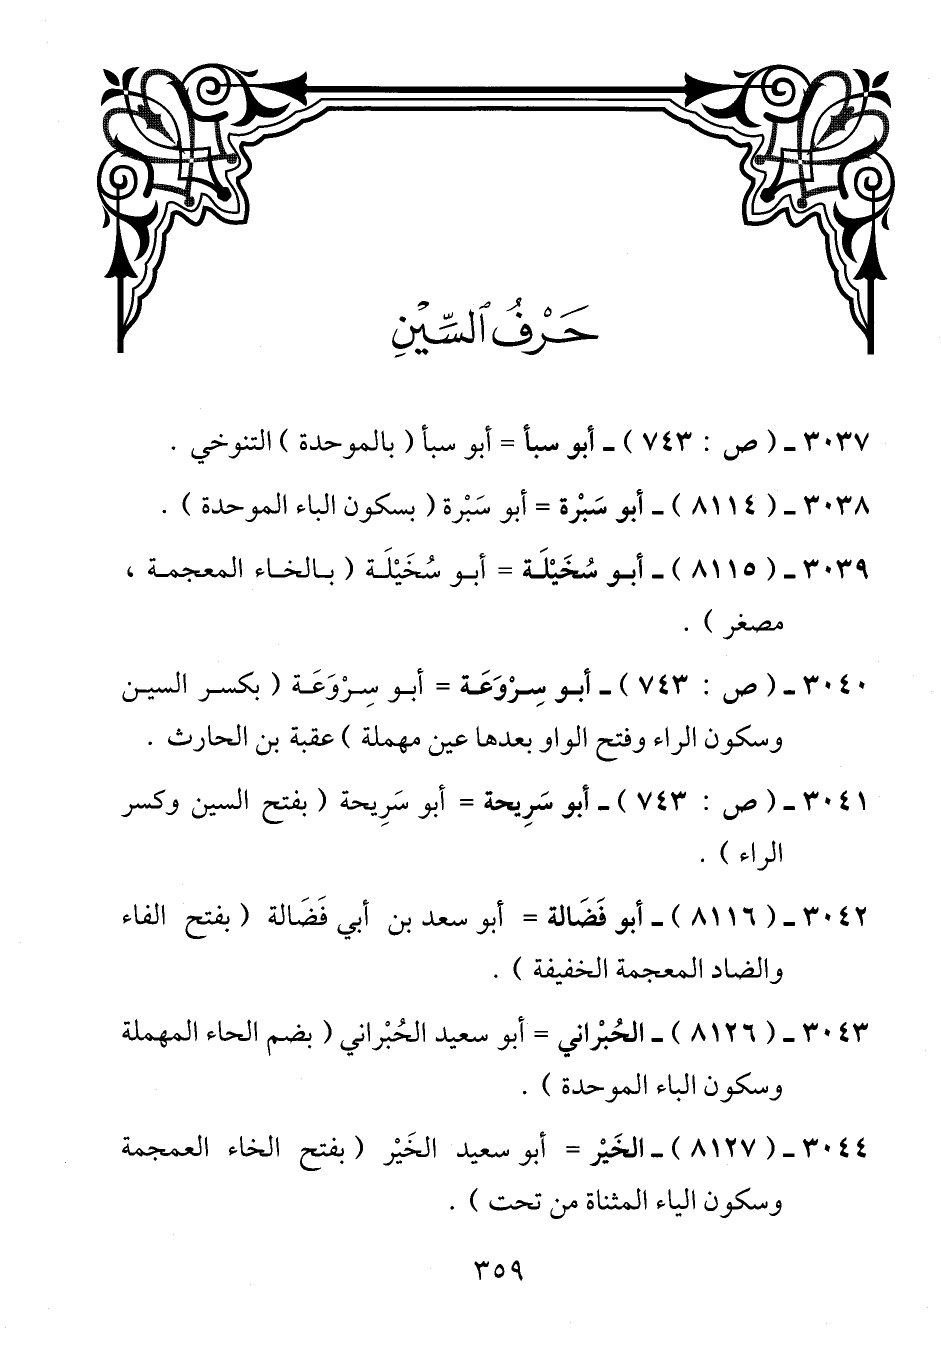 حَرْفُ ٱلسِّيْنِ
٣٠٣٧ ـ ( ص : ٧٤٣ ) ـ أبو سبأ = أبو سبأ ( بالموحدة ) التنوخي .
٣٠٣٨ ـ ( ٨١١٤ ) ـ أبو سَبْرة = أبو سَبْرة ( بسكون الباء الموحدة ) .
٣٠٣٩ ـ ( ٨١١٥ ) ـ أبـو سُخَيْلَـة = أبـو سُخَيْلَـة ( بـالخـاء المعجمـة ،
مصغر ) .
٣٠٤٠ ـ ( ص : ٧٤٣ ) ـ أبـو سِـرْوَعَـة = أبـو سِـرْوَعَـة ( بكسـر السيـن
وسكون الراء وفتح الواو بعدها عين مهملة ) عقبة بن الحارث .
٣٠٤١ ـ ( ص : ٧٤٣ ) ـ أبو سَرِيحة = أبو سَرِيحة ( بفتح السين وكسر
الراء ) .
٣٠٤٢ ـ ( ٨١١٦ ) ـ أبو فَضَالة = أبو سعد بن أبي فَضَالة ( بفتح الفاء
والضاد المعجمة الخفيفة ) .
٣٠٤٣ ـ ( ٨١٢٦ ) ـ الحُبْراني = أبو سعيد الحُبْراني ( بضم الحاء المهملة
وسكون الباء الموحدة ) .
٣٠٤٤ ـ ( ٨١٢٧ ) ـ الخَيْر = أبو سعيد الخَيْر ( بفتح الخاء العمجمة
وسكون الياء المثناة من تحت ) .
٣٥٩